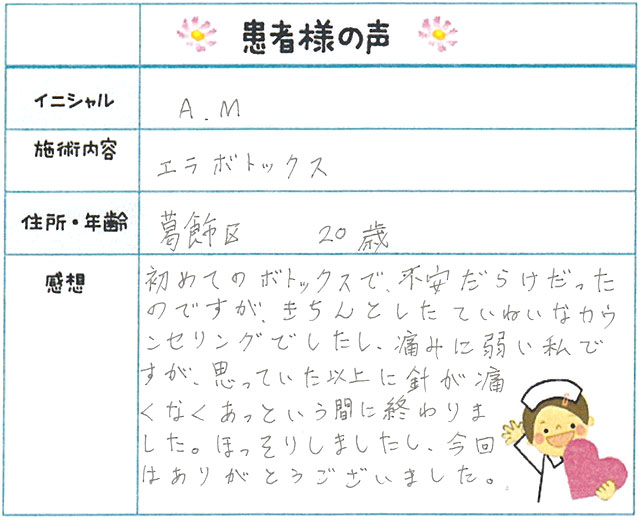 患者様の声
イニシャル
A.M
施術内容
エラボトックス
住所・年齢
葛飾区 20歳
感想
初めてのボトックスで、不安だらけだった
のですが、きちんとしたていねいなカウ
ンセリングでしたし、痛みに弱い私で
すが、思っていた以上に針が痛
くなくあっという間に終わりま
した。ほっそりしましたし、今回
はありがとうございました。